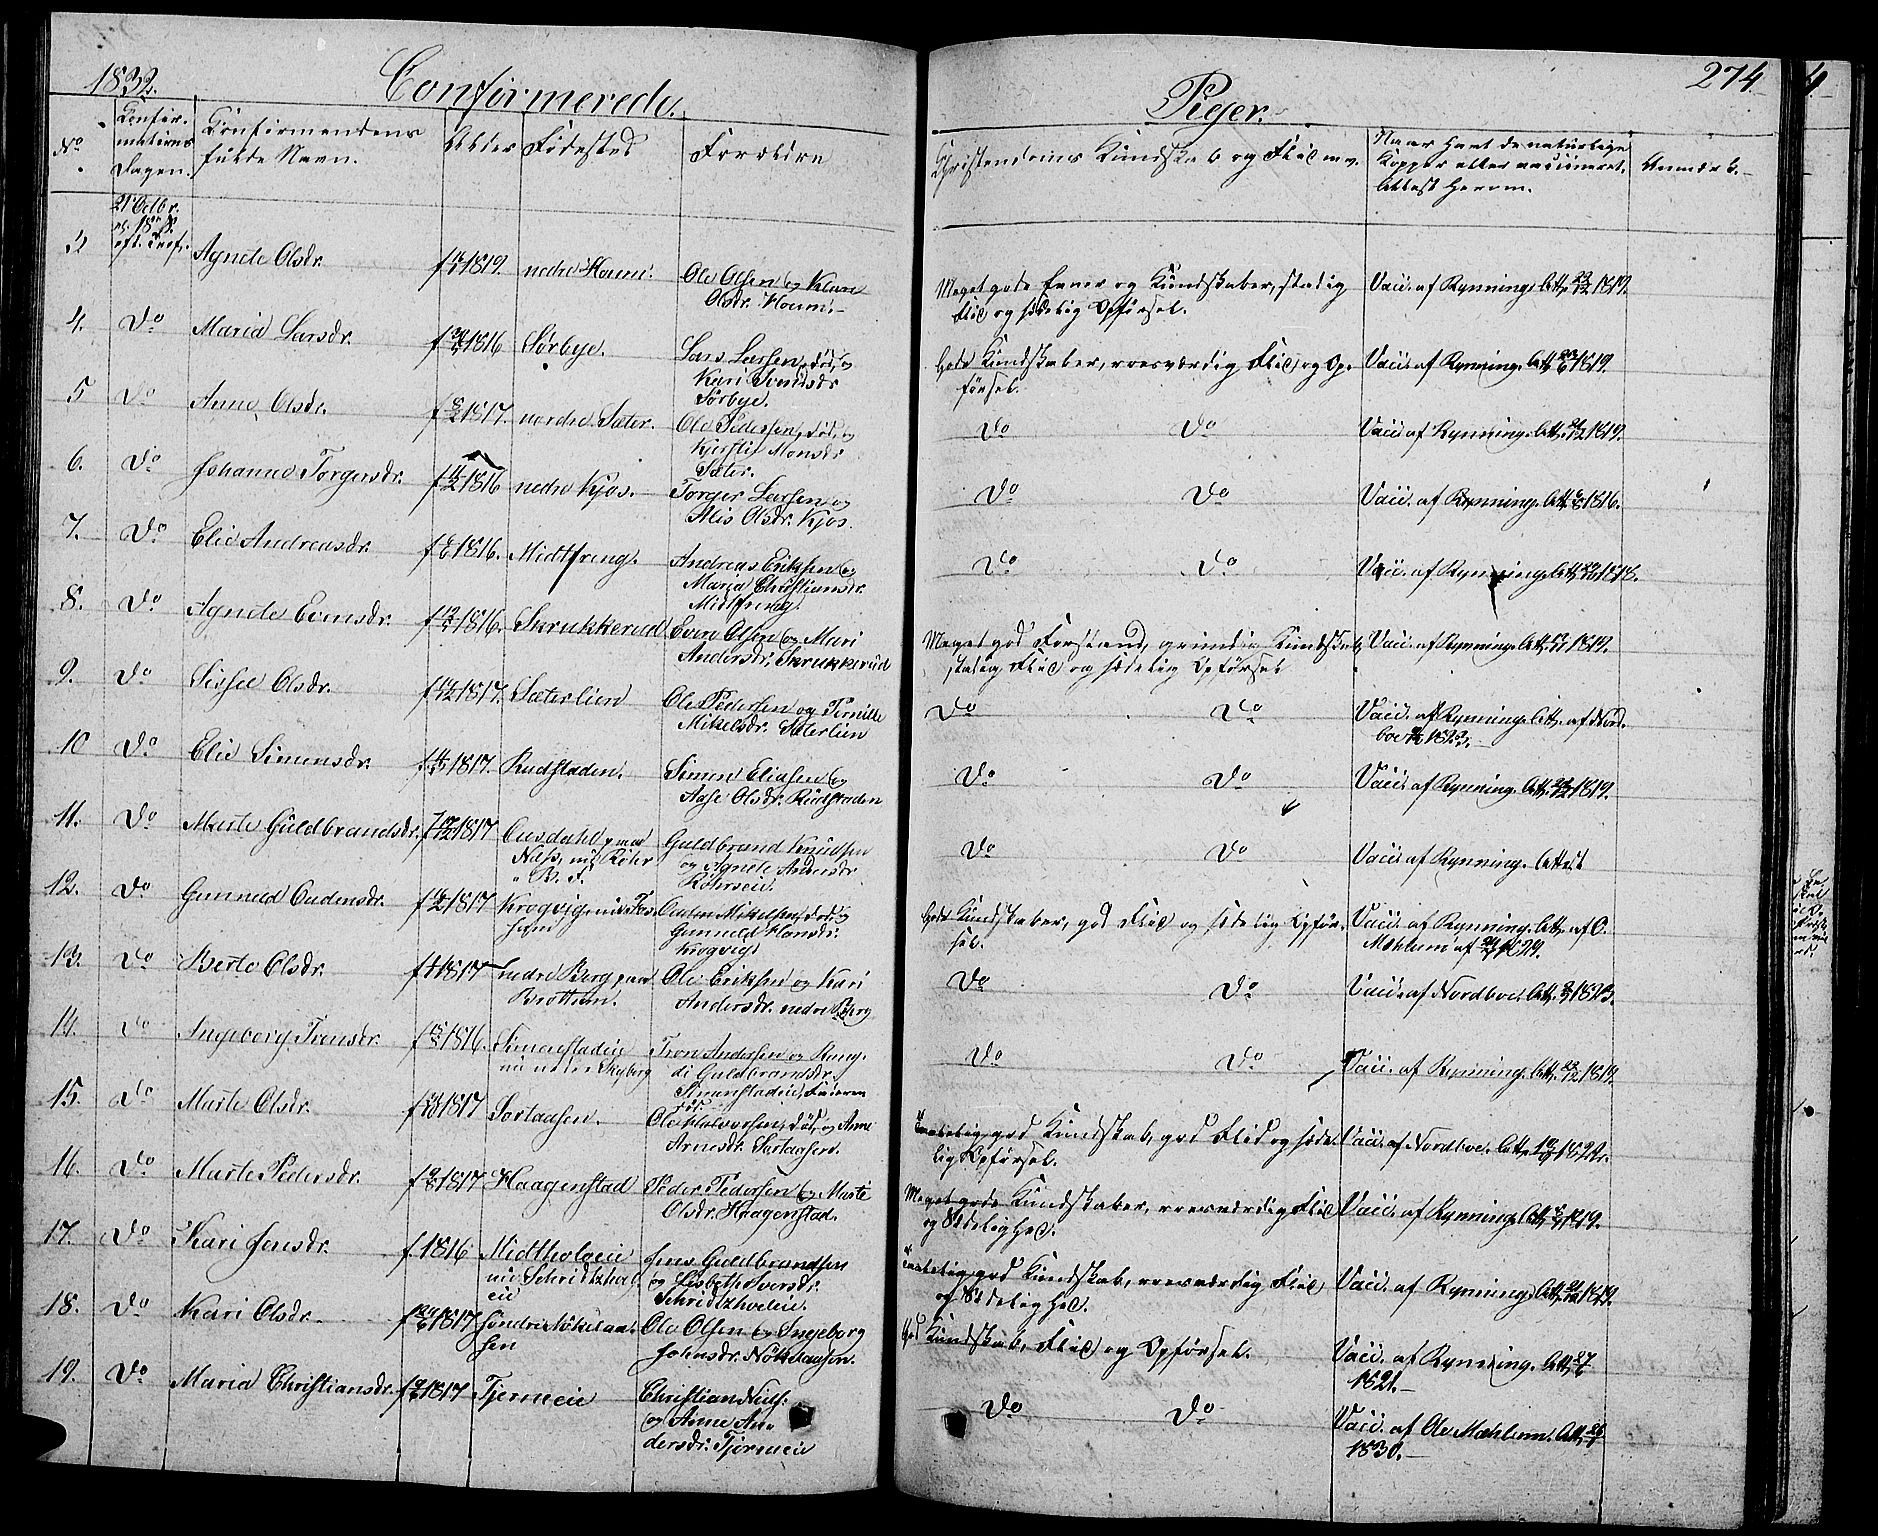 1832.
Confirmerede
Piger.
274
No
Confir-
mations
Dagen.
Confirmandens
fulde Navn.
Alder
Fødested
Forældre
Christendoms Kundskab og Flid m.v.
Naar havt de naturlige
Kopper eller vaccineret.
Attest herom.
Anmærk.
21 Octbr.
3 Agnete Olsdr. 1819. nedre Houm. Ole Olsen og
Olsdr. Houm.
Meget gode Evner og Kundskaber, stadig
Flid og sædelig Opførsel.
Vacc. af Rynning. Att. 1819.
4. Do Maria Larsdr. 1816 Sørbye. Lars Larsen, død, og
Kari Svendsdr.
Sørbye.
Gode Kundskaber, roesværdig Flid og Op-
førsel.
Vacc. af Rynning. Att. 1819.
5 Do Anne Olsdr. 1817. nordre Sæter. Ole Pedersen, død, og
Kjersti Monsdr
Sæter.
Do Do Vacc. af Rynning. Att. 1819.
6. Do Johanne Torgersdr. 1816 nedre Kjos. Torger Larsen og
Alis Olsdr. Kjos.
Do Do Vacc. af Rynning. Att. 1816.
7. Do Elie Andreasdr. 1816. Midtfreng. Andreas Eriksen og
Maria Christiansdr.
Midtfreng.
Do Do Vacc. af Rynning. Att. 1818.
8. Do Agnete Evensdr. 1816. Skrukkerud Even Olsen og Mari
Andersdr. Skrukkerud
Meget god Forstand, grundig Kundskab,
stadig Flid og sædelig Opførsel
Vacc. af Rynning. Att. 1819.
9. Do Sissel Olsdr. 1817. Sæterlien Ole Pedersen og Pernille
Mikelsdr. Sæterlien
Do Do Vacc. af Rynning. Att. af Nord-
boe 1823.
10 Do Elie Simensdr. 1817. Rudstaden. Simen Eliasen og
Aase Olsdr. Rudstaden
Do Do Vacc. af Rynning. Att. 1819.
11. Do Marte Guldbrandsdr. 1817 paa
Næs, nu Röhr
Guldbrand Knudsen
og Agnete Andersdr
Do Do Vacc. af Rynning. Attest
12. Do Gunnild Audensdr. 1817 Krogvig, nu Fos-
Auden Mikelsen, død, og
Gunnild Hansdr.
Krogvig.
Gode Kundskaber, god Flid og sædelig Opfør-
sel.
Vacc. af Rynning. Att. af O.
Mæhlum af 1829.
13. Do Berte Olsdr. 1817 nedre Berg, paa
Brøttum.
Ole Eriksen og Kari
Andersdr. nedre Berg
Do Do Vacc. af Nordboe. Att. 1823.
14. Do Ingeborg Tronsdr. 1816. Simenstadeie
nu under Skyberg
Tron Andersen og Rang-
di Guldbrandsdr.
Simenstadeie, Faderen
død.
Do Do Vacc. af Rynning. Att. 1819.
15. Do Marte Olsdr. 1817 Sortaasen. Ole Halvorsen, død, og Anne
Arnesdr. Sortaasen.
Temmelig god Kundskab, god Flid og sæde-
lig Opførsel.
Vacc. af Nordboe. Att. 1822.
16. Do Marte Pedersdr. 1817 Haagenstad Peder Pedersen og Marte
Olsdr. Haagenstad.
Meget gode Kundskaber, roesværdig Flid
og Sædelighed.
Vacc. af Rynning. Att. 1819.
17. Do Kari Jensdr. f. 1816 Midtholeie
nu Schridtzhol-
eie
Jens Guldbrandsen
og Lisbeth Iversdr.
Schridtzholeie.
Temmelig god Kundskab, roesværdig Flid
og Sædelighed.
Vacc. af Rynning. Att. 1819.
18. Do Kari Olsdr. 1817 søndre Nøklaa-
sen
Ole Olsen og Ingeborg
Johnsdr. Nøklaasen.
God Kundskab, Flid og Opførsel.
Vacc. af Rynning. Att.
1821.
19. Do Maria Christiansdr. 1817 Tjerneie Christian Niels-
og Anne An-
dersdr. Tjerneie
Do Do Vacc. af Ole Mæhlum. Att.
1830.